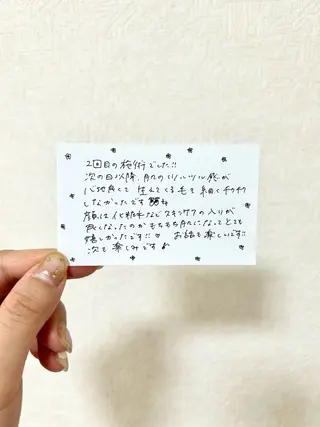 2回目の施術でした!!
次の日以降、肌のツルツル感が
心地良くて 生えてくる毛も細くチクチク
しなかったです
顔は化粧水などスキンケアの入りが
良くなったのかもちもち肌になってとても
嬉しかったです!! お話も楽しいです!!
次も楽しみです♪